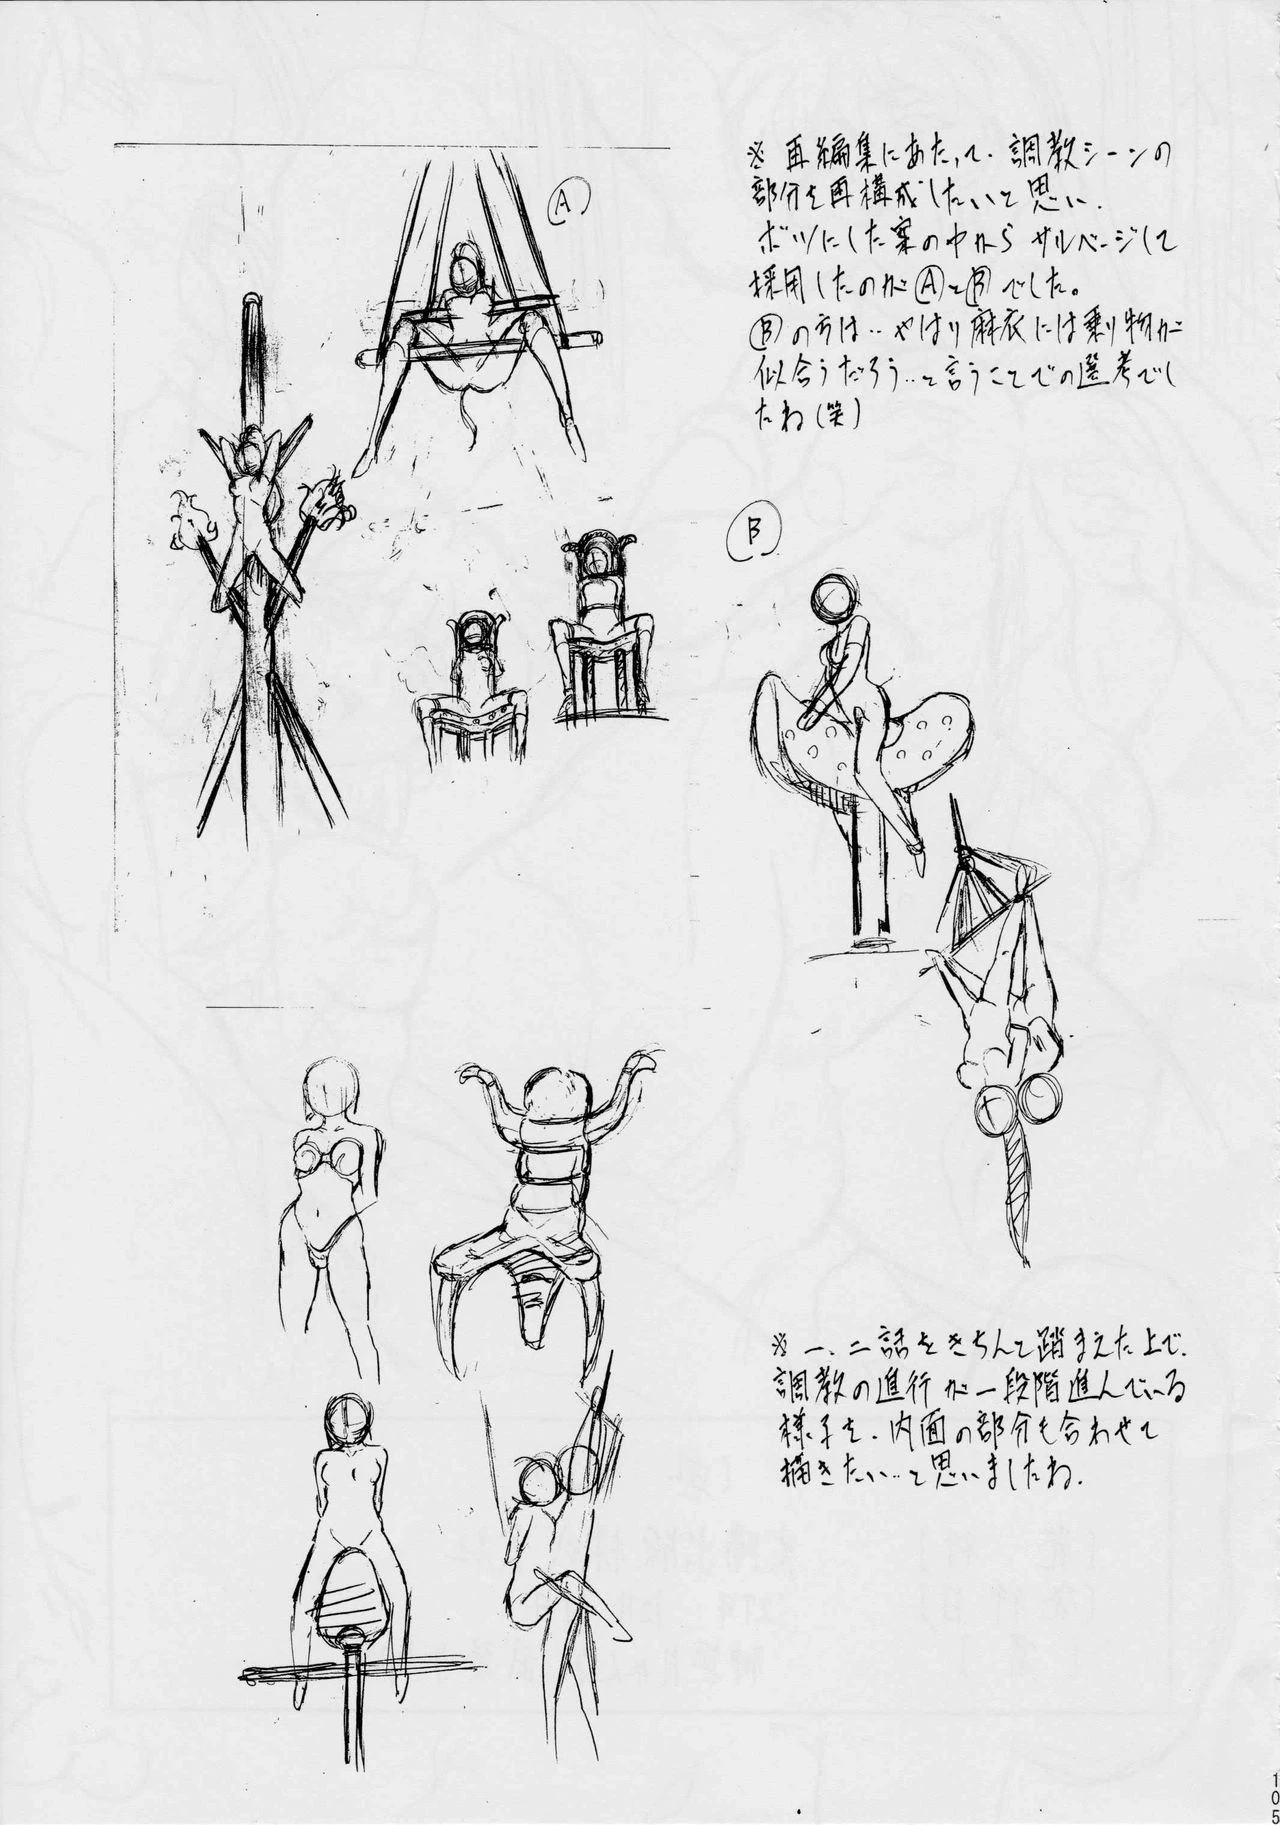 Ⓐ
※ 再編集にあたって、調教シーンの
部分を再構成したいと思い、
ボツにした案の中から サルベージして
採用したのがⒶとⒷでした。
Ⓑの方は‥やはり麻衣には乗り物が
似合うだろう‥と言うことでの選考でし
たね(笑)
Ⓑ
※ 一、二話をきちんと踏まえた上で、
調教の進行が一段階進んでいる
様子を、内面の部分も合わせて
描きたい‥と思いましたね。
105